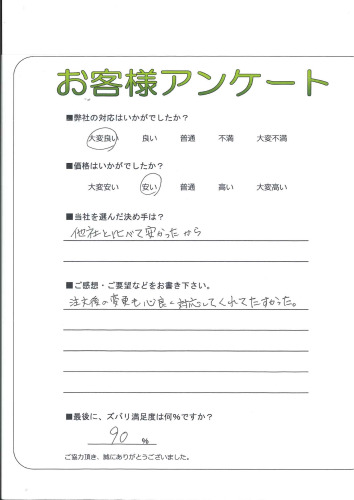 お客様アンケート
■弊社の対応はいかがでしたか？
大変良い 良い 普通 不満 大変不満
■価格はいかがでしたか？
大変安い 安い 普通 高い 大変高い
■当社を選んだ決め手は？
他社と比べて安かったから
■ご感想・ご要望などをお書き下さい。
注文後の変更も心良く対応してくれてたすかった。
■最後に、ズバリ満足度は何％ですか？
90 ％
ご協力頂き、誠にありがとうございました。